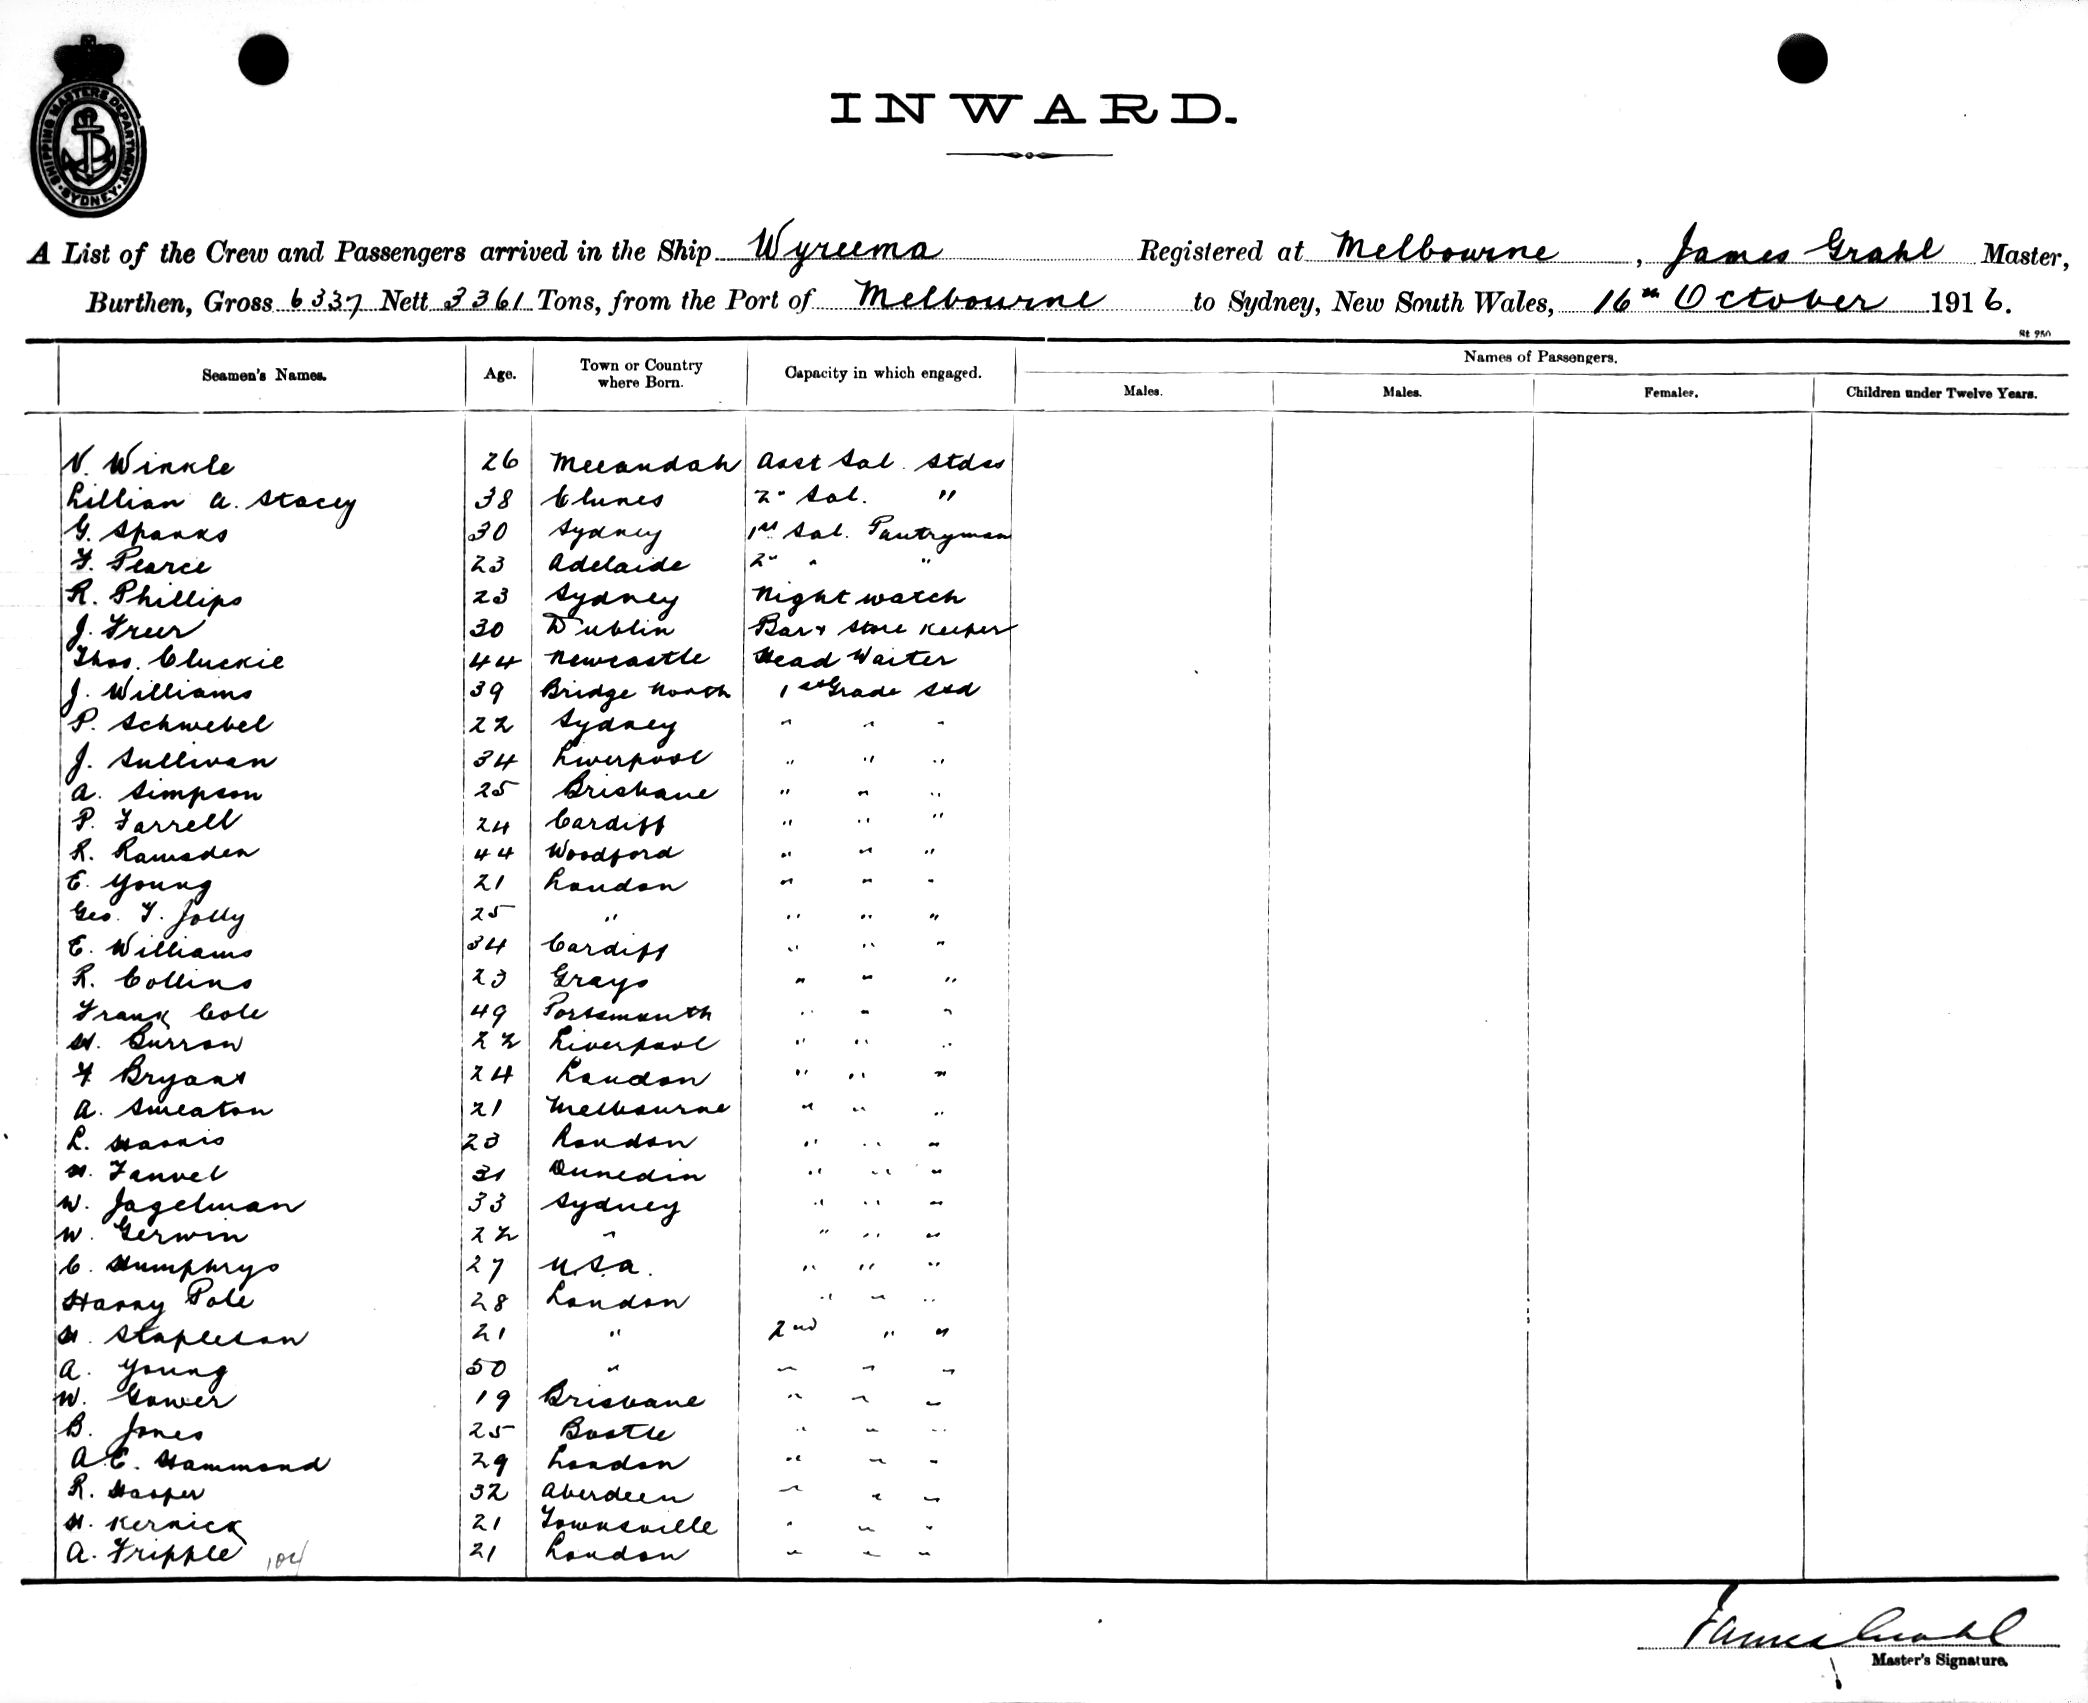 SHIPPING MASTERS DEPARTMENT · SYDNEY ·
INWARD.
A List of the Crew and Passengers arrived in the Ship Wyreema Registered at Melbourne, James Grahl Master,
Burthen, Gross 6337 Nett 3361 Tons, from the Port of Melbourne to Sydney, New South Wales, 16th October 1916.
St 950
Names of Passengers.
Seamen's Names. Age. Town or Country where Born. Capacity in which engaged. Males. Males. Females. Children under Twelve Years.
V. Winkle 26 Meeandah Asst Sal. Stdss
Lillian A. Stacey 38 Clunes 2" Sal. "
G. Sparks 30 Sydney 1st Sal. Pantryman
F. Pearce 23 Adelaide 2" " "
R. Phillips 23 Sydney Night watch
J. Freer 30 Dublin Bar & Store Keeper
Thos. Cluckie 44 Newcastle Head Waiter
J. Williams 39 Bridge North 1st Grade Std
P. Schwebel 22 Sydney " " "
J. Sullivan 34 Liverpool " " "
A. Simpson 25 Brisbane " " "
P. Farrell 24 Cardiff " " "
R. Ramsden 44 Woodford " " "
E. Young 21 London " " "
Geo. F. Jolly 25 " " " "
E. Williams 34 Cardiff " " "
R. Collins 23 Grays " " "
Frank Cole 49 Portsmouth " " "
H. Burrow 22 Liverpool " " "
F Bryant 24 London " " "
A. Smeaton 21 Melbourne " " "
L. Harris 23 London " " "
H. Fauvel 31 Dunedin " " "
W. Jagelman 33 Sydney " " "
W. Gerwin 22 " " " "
C. Humphrys 27 U.S.A. " " "
Harry Pole 28 London " " "
H. Stapleton 21 " 2nd " "
A. Young 50 " " " "
W. Gower 19 Brisbane " " "
B. Jones 25 Bootle " " "
A. E. Hammond 29 London " " "
R. Hooper 32 Aberdeen " " "
H. Kernick 21 Townsville " " "
A. Fripple 104 21 London " " "
James Grahl
Master's Signature.